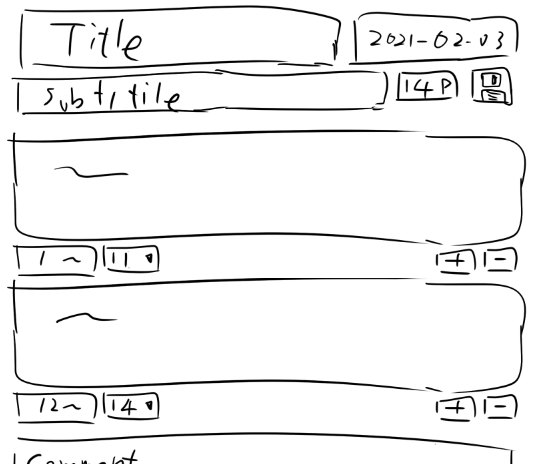 Title 2021-02-03
subtitile 14P
1 ~ 11
+ -
12~ 14
+ -
Comment